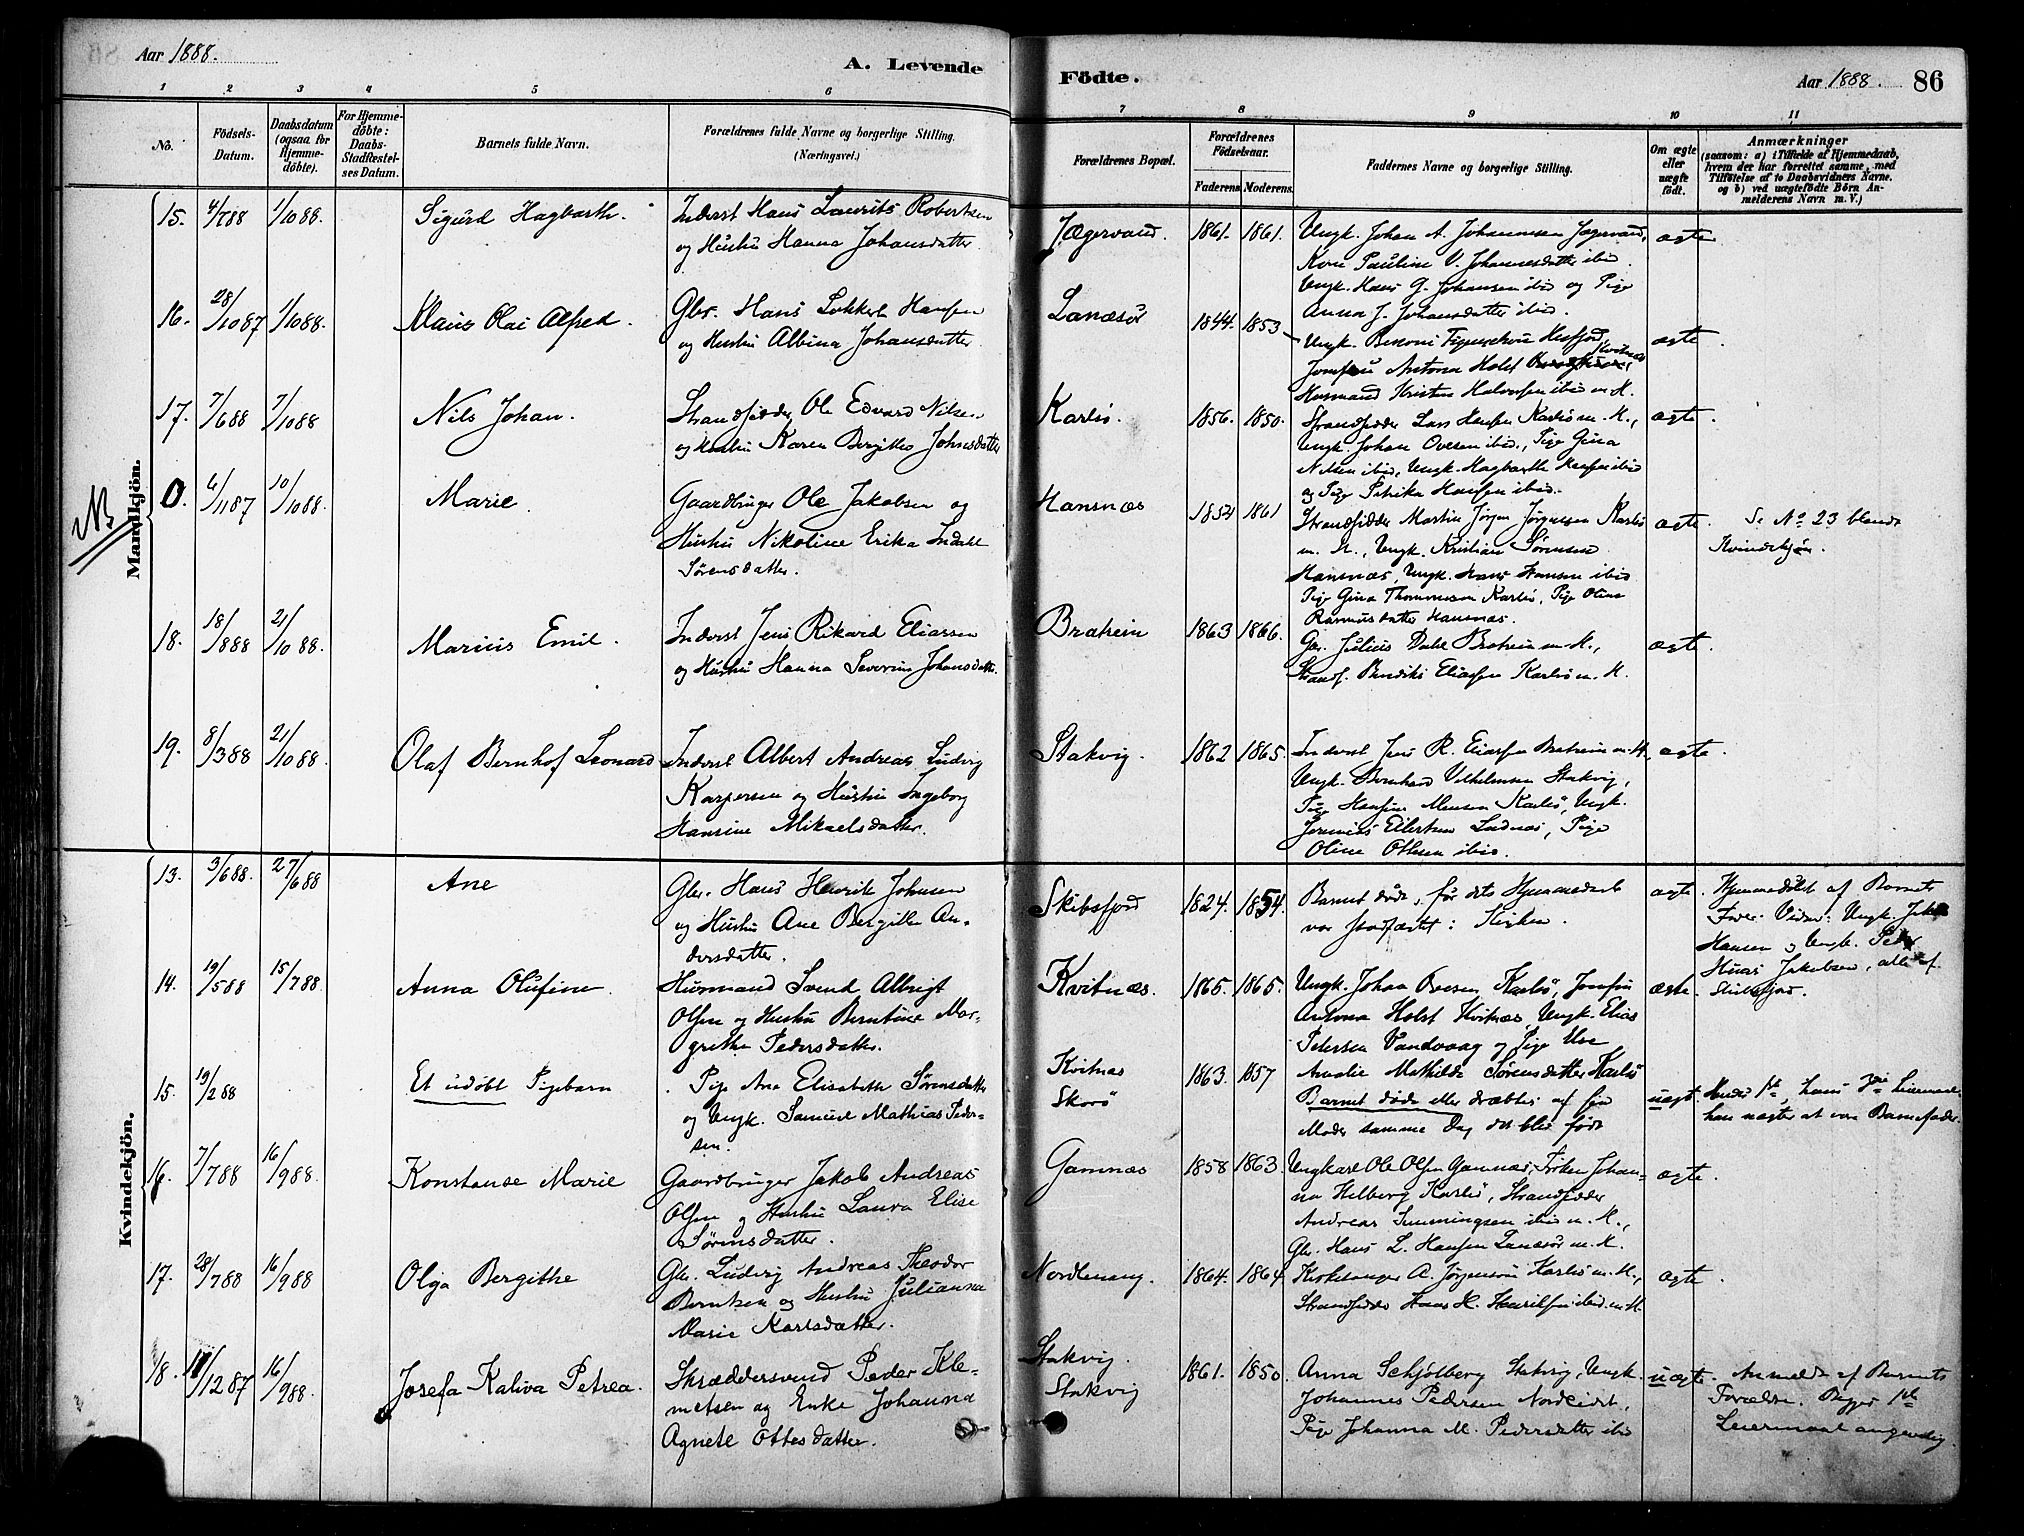 Aar 1888.
A. Levende Födte.
Aar 1888. 86
1 2 3 4 5 6 7 8 9 10 11
No.
Födsels-
Datum.
Daabsdatum
(ogsaa for
Hjemme-
döbte).
For Hjemme-
döbte:
Daabs-
Stadfæstel-
ses Datum.
Barnets fulde Navn.
Forældrenes fulde Navne og borgerlige Stilling.
(Næringsvei.)
Forældrenes Bopæl.
Forældrenes
Födselsaar.
Faderens Moderens.
Faddernes Navne og borgerlige Stilling.
Om ægte
eller
uægte
födt.
Anmærkninger
(saasom: a) i Tilfælde af Hjemmedaab,
hvem der har forrettet samme, med
Tilföielse af to Daabsvidners Navne,
og b) ved uægtefödte Börn An-
melderens Navn m. V.)
Mandkjön.
NB
15. 4/788 1/1088. Sigurd Hagbarth.
Inderst Hans Laurits Robertsen
og Hustru Hanna Johansdatter.
Jægervand. 1861. 1861.
Ungk. Johan A. Johannesen Jægervand,
Kone Pauline V. Johannesdatter ibid.
Ungk. Hans G. Johansen ibid og Pige
Anna J. Johansdatter ibid.
ægte
16. 28/1087 1/1088. Klaus Olai Alfred.
Gbr. Hans Lokkert Hansen
og Hustru Albina Johansdatter.
Lanæsör 1844. 1853
Jomfru Antona Holst Kvitnæs,
Husmand Kristen Halvorsen ibid m. K.
ægte.
17. 7/688 7/1088 Nils Johan.
Strandsidder Ole Edvard Nilsen
og Hustru Karen Bergitte Johnsdatter
Karlsö. 1856. 1850.
Strandsidder Lars Hansen Karlsö m. K.,
Ungk. Johan Ovesen ibid., Pige Gina
Nilsen ibid, Ungk. Hagbarth Hansen ibid
og Pige Petrika Hansen ibid.
ægte
0. 6/1187 10/1088. Marie
Gaardbruger Ole Jakobsen og
Hustru Nikoline Erika Indahl
Sörensdatter.
Hansnæs 1854 1861
Strandsidder Martin Jörgen Jörgensen Karlsö
m. K., Ungk. Kristian Sörensen
Hansnæs, Ungk. Hans Hansen ibid
Pige Gina Thommesen Karlsö, Pige Olina
Rasmusdatter Hansnæs.
ægte.
Se No 23 blandt
Kvindekjön.
18. 18/888 21/1088. Marius Emil.
Inderst Jens Rikard Eliassen
og Hustru Hanna Severine Johansdatter.
Bratrein 1863 1866.
Gbr. Julius Dahl Bratrein m. K.,
Strands. Bendiks Eliassen Karlsö m. K.
ægte.
19. 8/388 21/1088. Olaf Bernhof Leonard
Inderst Albert Andreas Ludvig
Kaspersen og Hustru Ingeborg
Hansine Mikaelsdatter.
Stakvig. 1862 1865.
Inderst Jens R. Eliassen Bratrein m. K.,
Ungk. Bernhard Vilhelmsen Stakvig,
Pige Hansine Monsen Karlsö, Ungk.
Jeremias Eilertsen Ladnæs, Pige
Oline Ottesen ibid.
ægte.
Kvindekjön.
13. 3/688. 27/688 Ane
Gbr. Hans Henrik Johnsen
og Hustru Ane Bergitte An-
dersdatter.
Skibsfjord 1824. 1854.
Barnet döde, för dets Hjemmedaab
var stadfæstet i Kirken.
ægte.
Hjemmedöbt af Barnets
Fader. Vidner: Ungk. Jakob
Hansen og Ungk. Peder
Hans Jakobsen, alle af
Skibsfjord.
14. 19/588 15/788. Anna Olufine.
Husmand Svend Albrigt
Olsen og Hustru Berntine Mar-
grethe Pedersdatter.
Kvitnæs. 1865. 1865.
Ungk. Johan Ovesen Karlsö, Jomfru
Antona Holst Kvitnæs, Ungk. Elias
Petersen Vandvaag og Pige
Amalie Mathilde Sörensdatter Karlsö
ægte.
15. 19/288 Et udöbt Pigebarn
Pige Ane Elisabeth Sörensdatter
og Ungk. Samuel Mathias Peder-
sen.
Kvitnæs
Skorö 1863. 1857
Barnet döde eller dræbtes af sin
Moder samme Dag det blev födt
uægt.
Hendes 1ste, hans 3die Leiermaal
han nægter at være Barnefader.
16. 7/788 16/988. Konstanse Marie
Gaardbruger Jakob Andreas
Olsen og Hustru Laura Elise
Sörensdatter.
Gamnæs 1858 1863.
Ungkarl Ole Olsen Gamnæs, Fröken Johan-
na Helberg Karlsö, Strandsidder
Andreas Simmingsen ibid m. K.,
Gbr. Hans L. Hansen Lanæsör m. K.
ægte.
17. 28/788 16/988 Olga Bergithe
Gbr. Ludvig Andreas Theodor
Berntsen og Hustru Julianna
Marie Karlsdatter.
Nordlenang. 1864. 1864
Kirkesanger A. Jörgensen Karlsö m. K.,
Strandsidder Hans H. ibid. m. K
ægte.
18. 11/1287 16/988. Josefa Kaliva Petrea.
Skræddersvend Peder Kle-
metsen og Enke Johanna
Agnete Ottesdatter.
Stakvig.
Stakvig 1861. 1850.
Anna Schjölberg Stakvig, Ungk.
Johannes Pedersen Nordeidet,
Pige Johanna M. Pedersdatter ibid
uægte.
Anmeldt af Barnets
Forældre. Begges 1ste
Leiermaal angivelig.